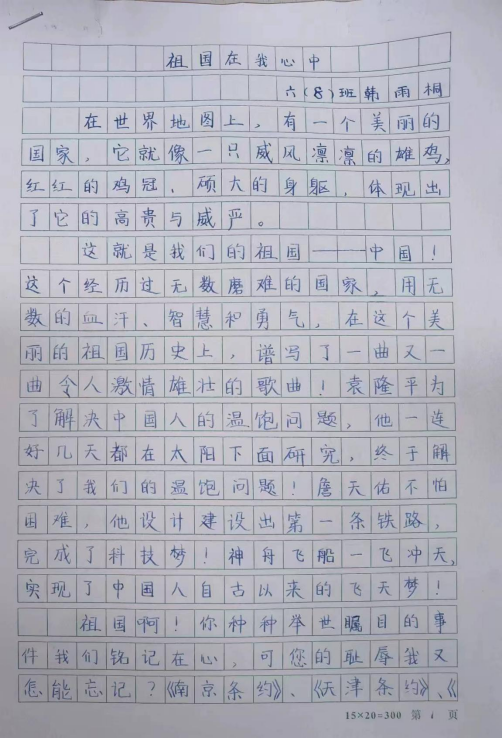 祖国在我心中
六(8)班韩雨桐
在世界地图上，有一个美丽的
国家，它就像一只威风凛凛的雄鸡，
红红的鸡冠、硕大的身躯，体现出
了它的高贵与威严。
这就是我们的祖国——中国！
这个经历过无数磨难的国家，用无
数的血汗、智慧和勇气，在这个美
丽的祖国历史上，谱写了一曲又一
曲令人激情雄壮的歌曲！袁隆平为
了解决中国人的温饱问题，他一连
好几天都在太阳下面研究，终于解
决了我们的温饱问题！詹天佑不怕
困难，他设计建设出第一条铁路，
完成了科技梦！神舟飞船一飞冲天，
实现了中国人自古以来的飞天梦！
祖国啊！你种种举世瞩目的事
件我们铭记在心，可您的耻辱我又
怎能忘记？《南京条约》、《天津条约》、《
15×20=300 第 1 页